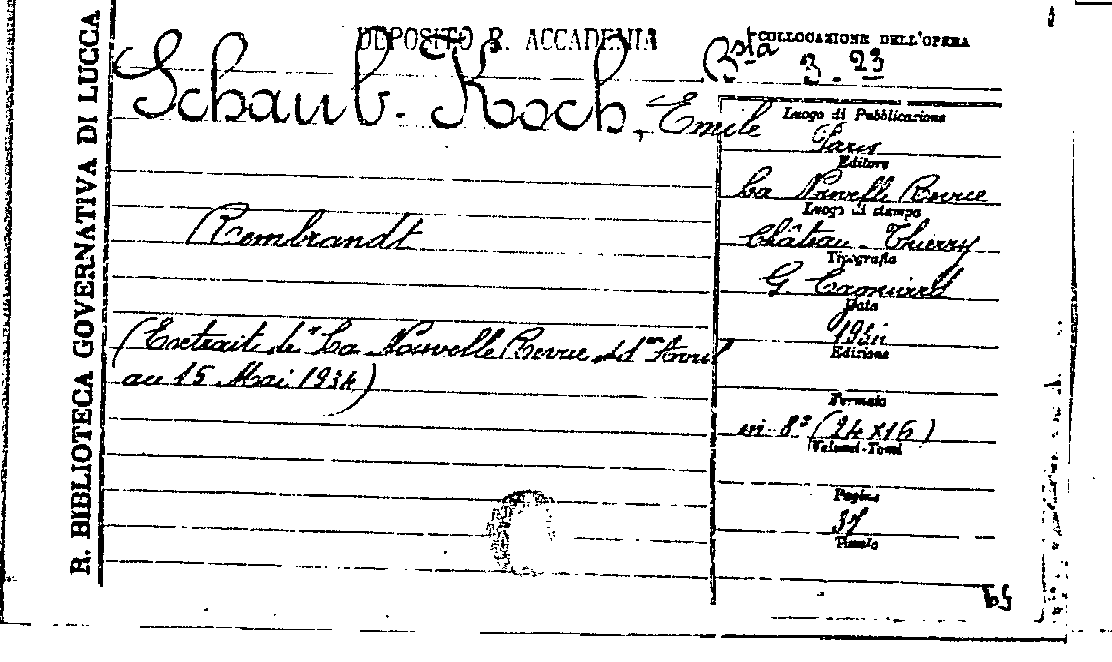 R. BIBLIOTECA GOVERNATIVA DI LUCCA
DEPOSITO R. ACCADEMIA
COLLOCAZIONE DELL'OPERA
Bsta 3. 23
Schaub-Koch, Emile
Rembrandt
(Extrait de "La Nouvelle Revue du 1er Avril
au 15 Mai 1934)
Luogo di Pubblicazione
Paris
Editore
La Nouvelle Revue
Luogo di stampa
Château-Thierry
Tipografia
G.
Data
Edizione
Formato
in-8° (24×16)
Volumi-Tomi
Pagine
37